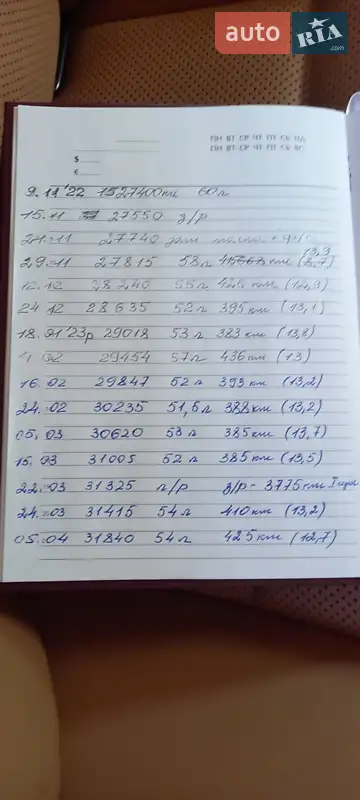 auto RIA .com
ПН ВТ СР ЧТ ПТ СБ НД
ПН ВТ СР ЧТ ПТ СБ ВС
$
€
9.11'22 1527400км 60л
15.11 27550 з/р
21.11 27740
13,9
29.11 27815 58л км (13,7)
12.12 28240 55л 425 км (12,9)
24.12 28635 52л 395км (13,1)
18.01'23р 29018 53л 383км (13,8)
02 29454 57л 436км (13)
16.02 29847 52л 393км (13,2)
24.02 30235 51,5л 388км (13,2)
05.03 30620 53л 385км (13,7)
15.03 31005 52л 385км (13,5)
22.03 31325 л/р з/р - 3775км I
24.03 31415 54л 410км (13,2)
05.04 31840 54л 425км (12,7)